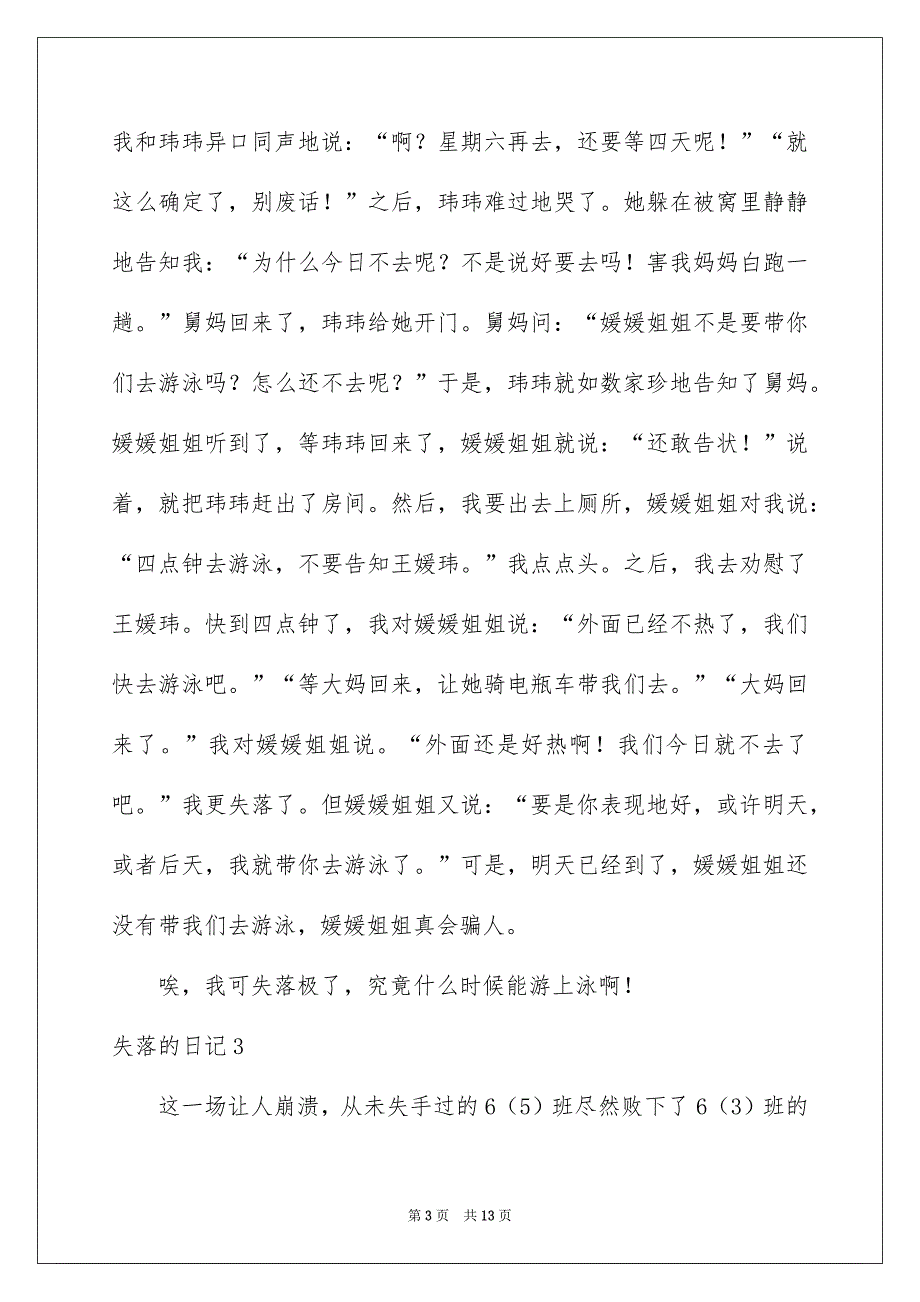 我和玮玮异口同声地说：“啊？星期六再去，还要等四天呢！”“就
这么确定了，别废话！”之后，玮玮难过地哭了。她躲在被窝里静静
地告知我：“为什么今日不去呢？不是说好要去吗！害我妈妈白跑一
趟。”舅妈回来了，玮玮给她开门。舅妈问：“媛媛姐姐不是要带你
们去游泳吗？怎么还不去呢？”于是，玮玮就如数家珍地告知了舅妈。
媛媛姐姐听到了，等玮玮回来了，媛媛姐姐就说：“还敢告状！”说
着，就把玮玮赶出了房间。然后，我要出去上厕所，媛媛姐姐对我说：
“四点钟去游泳，不要告知王媛玮。”我点点头。之后，我去劝慰了
王媛玮。快到四点钟了，我对媛媛姐姐说：“外面已经不热了，我们
快去游泳吧。”“等大妈回来，让她骑电瓶车带我们去。”“大妈回
来了。”我对媛媛姐姐说。“外面还是好热啊！我们今日就不去了
吧。”我更失落了。但媛媛姐姐又说：“要是你表现地好，或许明天，
或者后天，我就带你去游泳了。”可是，明天已经到了，媛媛姐姐还
没有带我们去游泳，媛媛姐姐真会骗人。
唉，我可失落极了，究竟什么时候能游上泳啊！
失落的日记3
这一场让人崩溃，从未失手过的6（5）班尽然败下了6（3）班的
第 3 页 共 13 页